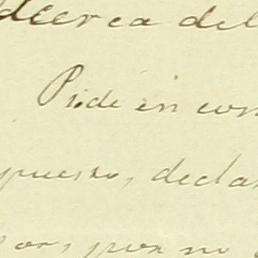 acerca del
Pide en con
puesto, decla
por no